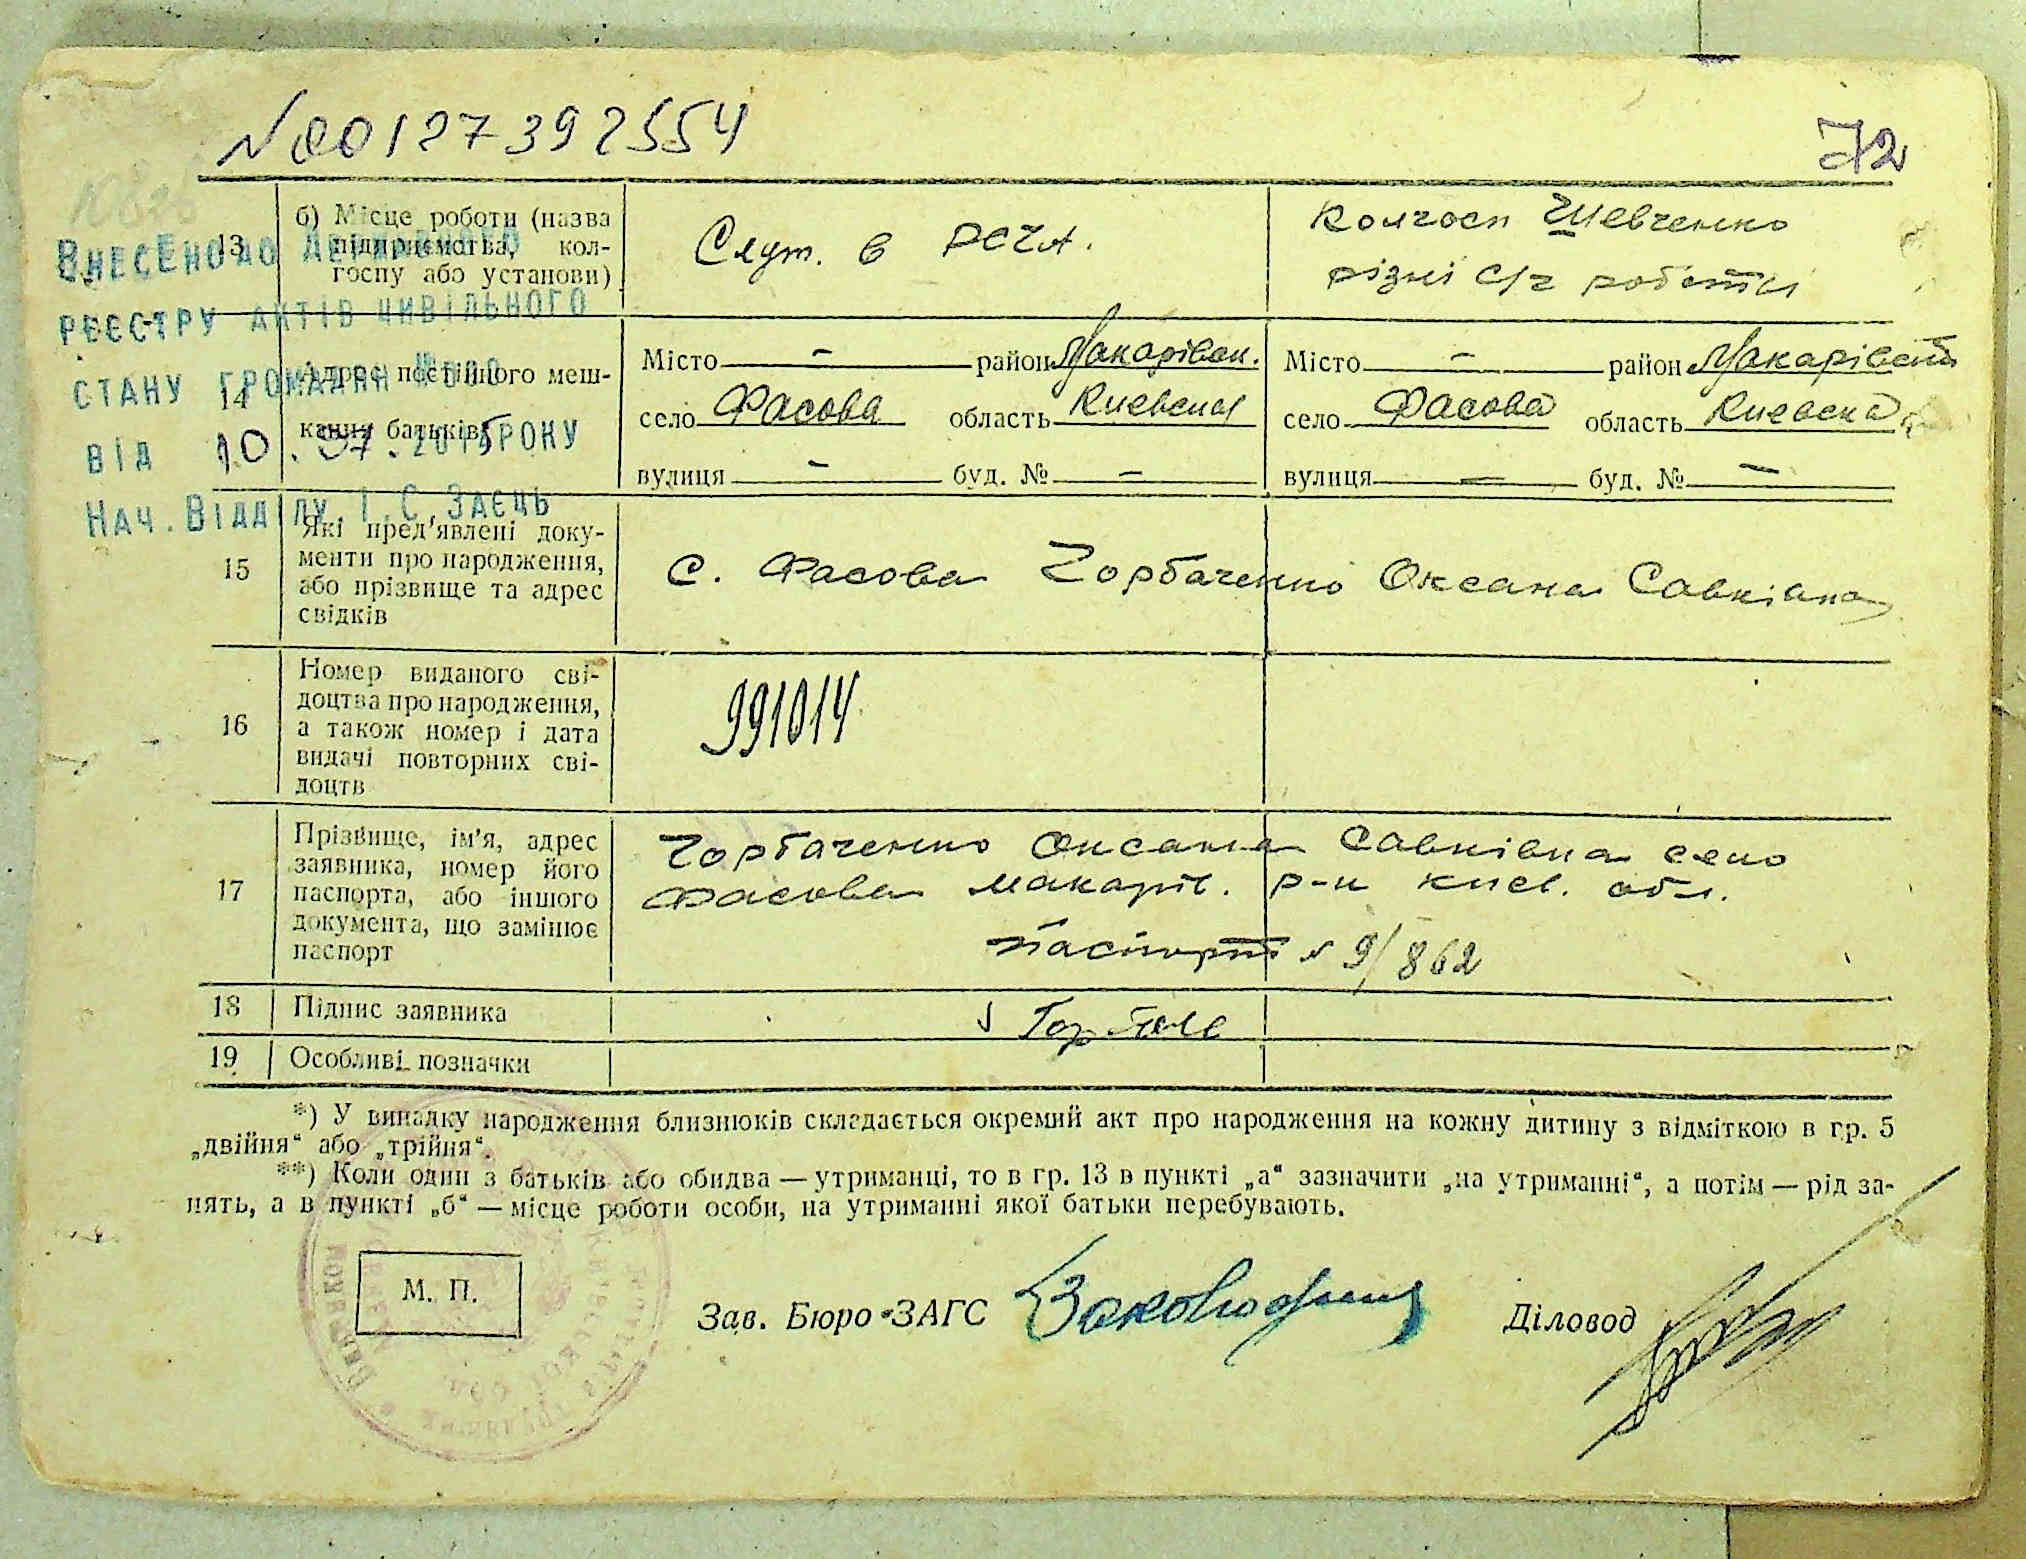 №00127392554
72
13
б) Місце роботи (назва
підприємства, кол-
госпу або установи)
Служ. в РСЧА.
Колгосп Шевченко
різні с/г роботи
ВНЕСЕНО ДО ДЕРЖАВНОГО
РЕЄСТРУ АКТІВ ЦИВІЛЬНОГО
СТАНУ ГРОМАДЯН
ВІД 10.07.2015 РОКУ
НАЧ. ВІДДІЛУ І.С. ЗАЄЦЬ
14
Адрес постійного меш-
кання батьків
Місто — район Макарівськ.
село Фасова область Киевская
вулиця — буд. № —
Місто — район Макарівськ
село Фасова область Киевска
вулиця — буд. № —
15
Які пред'явлені доку-
менти про народження,
або прізвище та адрес
свідків
с. Фасова Горбаченко Оксана Савківна
16
Номер виданого сві-
доцтва про народження,
а також номер і дата
видачі повторних сві-
доцтв
991014
17
Прізвище, ім'я, адрес
заявника, номер його
паспорта, або іншого
документа, що замінює
паспорт
Горбаченко Оксана Савківна село
Фасова Макарів. р-н Киев. обл.
паспорт № 9/862
18
Підпис заявника
19
Особливі позначки
*) У випадку народження близнюків складається окремий акт про народження на кожну дитину з відміткою в гр. 5
„двійня“ або „трійня“.
**) Коли один з батьків або обидва — утриманці, то в гр. 13 в пункті „а“ зазначити „на утриманні“, а потім — рід за-
нять, а в пункті „б“ — місце роботи особи, на утриманні якої батьки перебувають.
М. П.
Зав. Бюро ЗАГС
Діловод